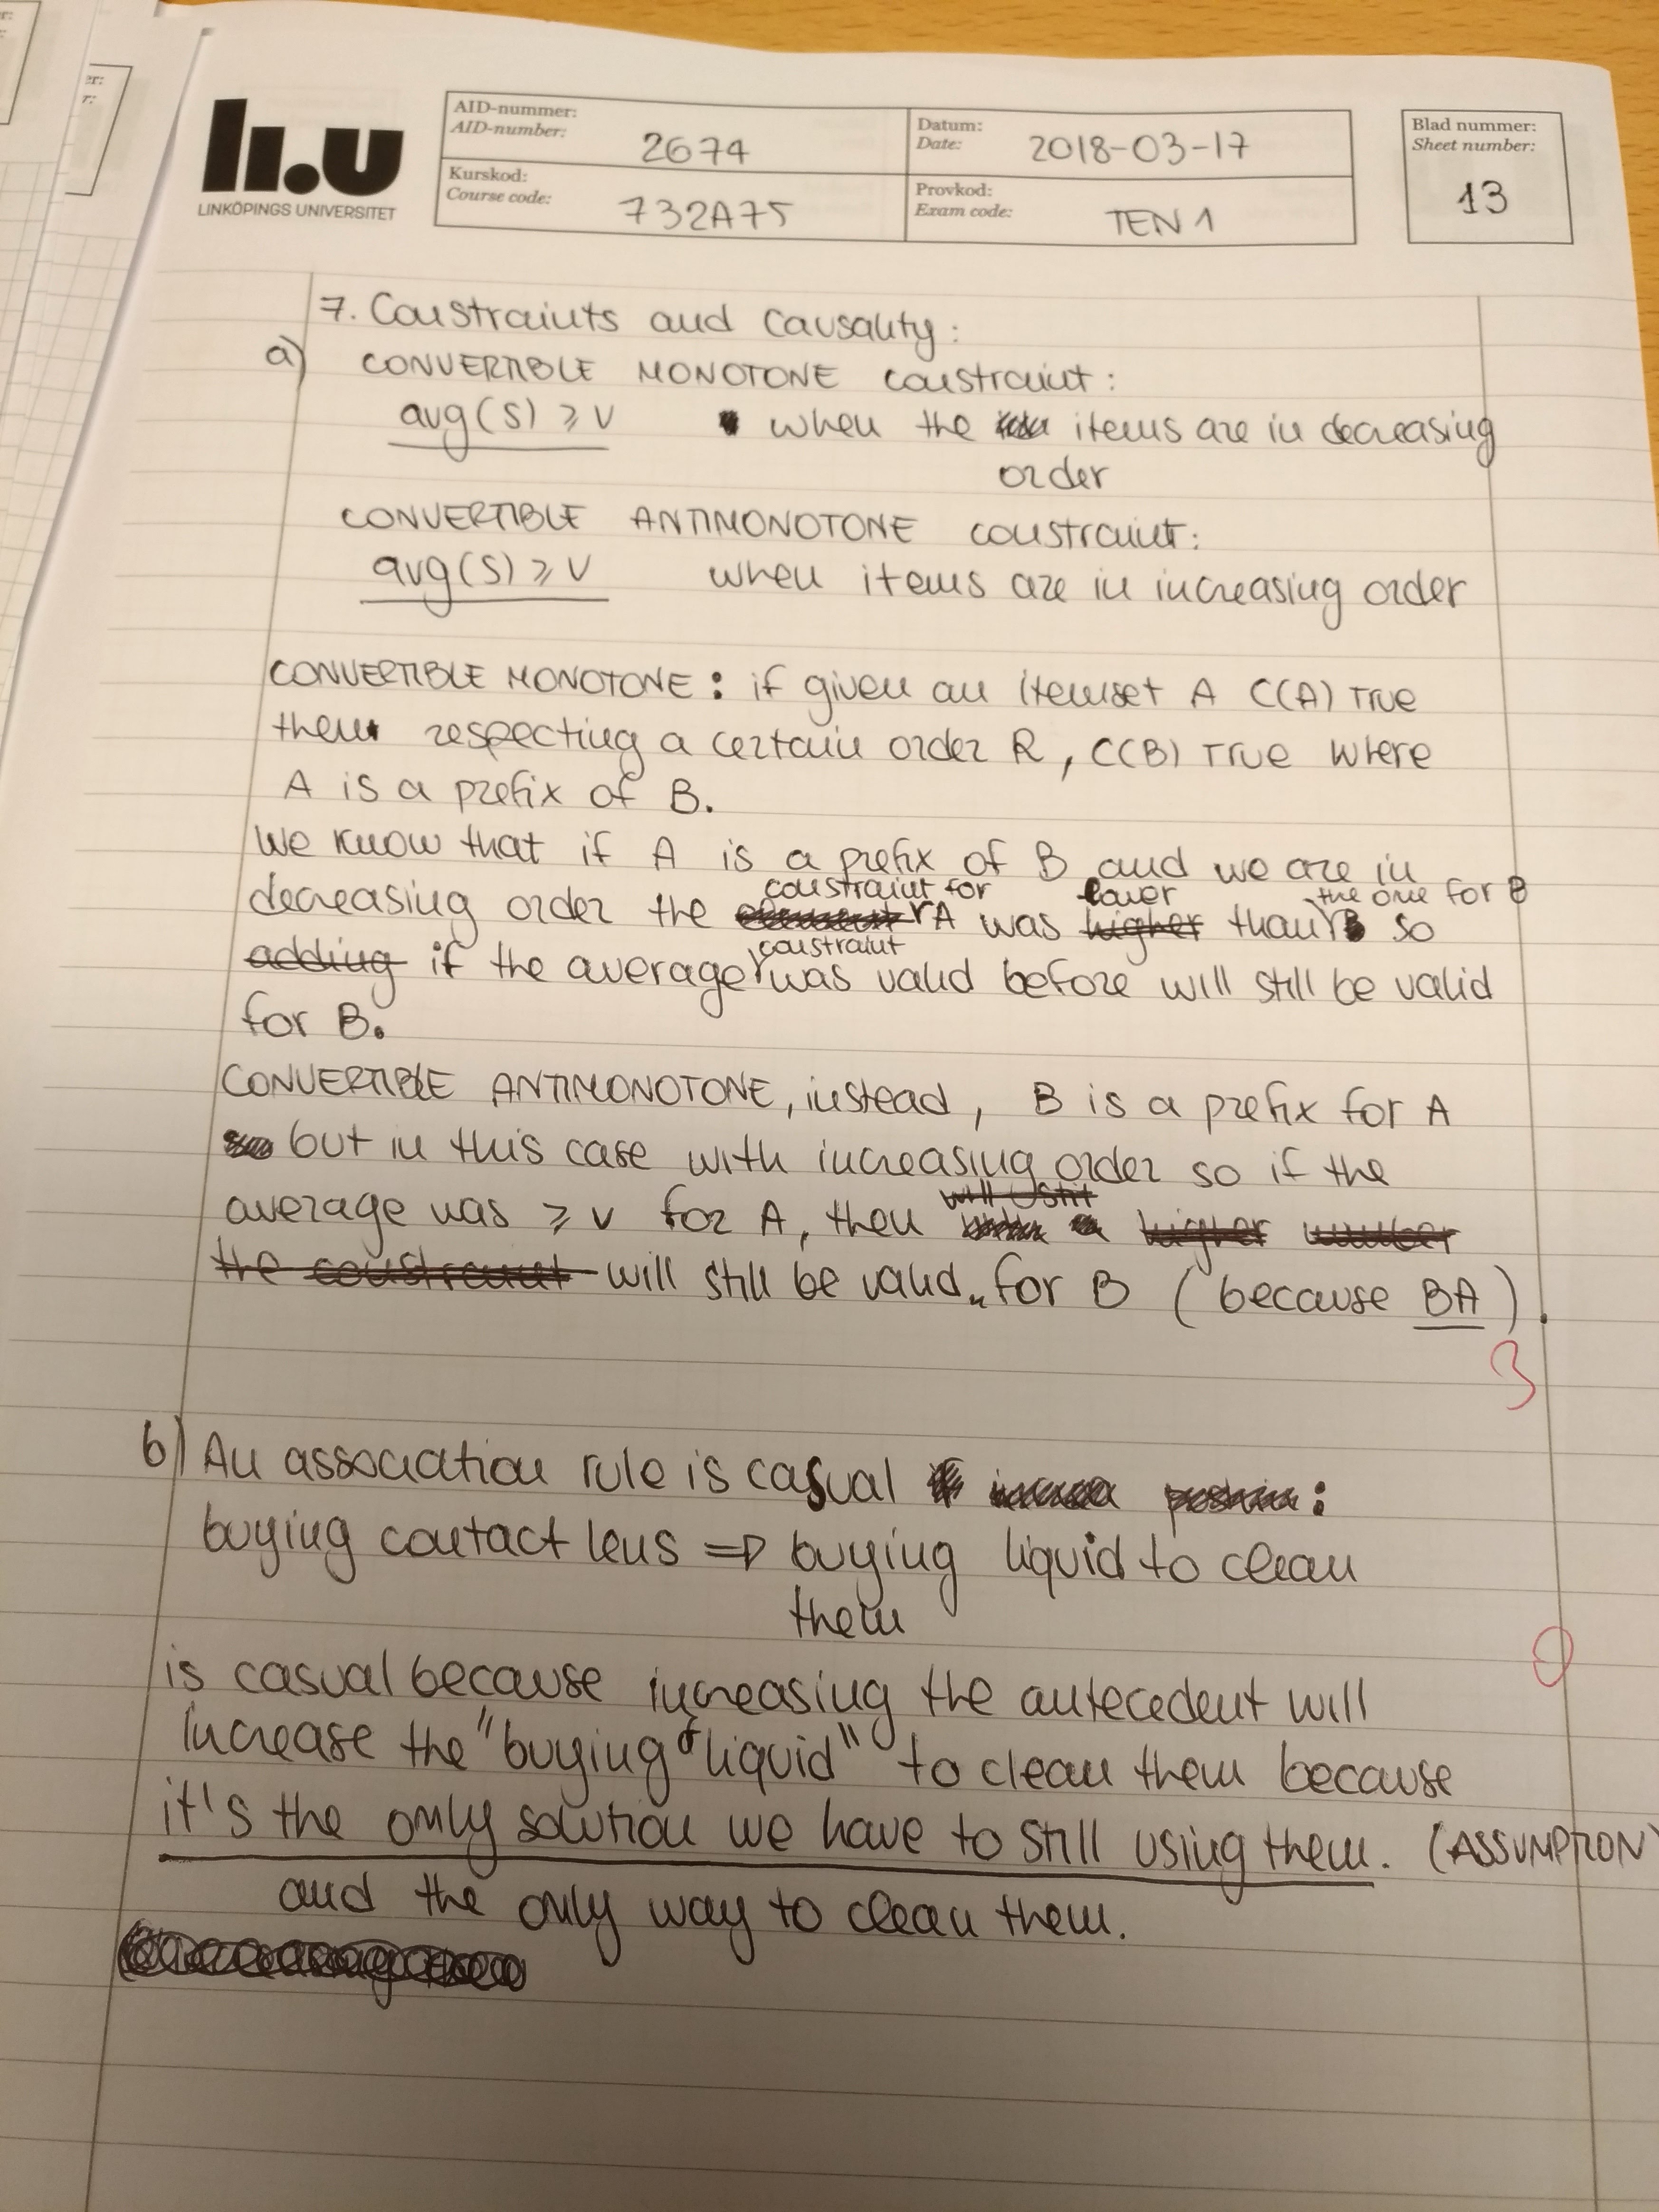 er:
er:
r:
li.u
LINKÖPINGS UNIVERSITET
AID-nummer:
AID-number:
2674
Datum:
Date:
2018-03-17
Kurskod:
Course code:
732A75
Provkod:
Exam code:
TEN 1
Blad nummer:
Sheet number:
13
7. Constraints and Causality:
a) CONVERTIBLE MONOTONE constraint:
avg(S) ≥ v when the items are in decreasing
order
CONVERTIBLE ANTIMONOTONE constraint:
avg(S) ≥ v when items are in increasing order
CONVERTIBLE MONOTONE: if given an itemset A C(A) True
then respecting a certain order R, C(B) True where
A is a prefix of B.
We know that if A is a prefix of B and we are in
decreasing order the constraint for A was lower than the one for B so
if the average constraint was valid before will still be valid
for B.
CONVERTIBLE ANTIMONOTONE, instead, B is a prefix for A
but in this case with increasing order so if the
average was ≥ v for A, then
will still be valid for B (because BA).
3
b) An association rule is casual :
buying contact lens ⇒ buying liquid to clean
them
0
is casual because increasing the antecedent will
increase the "buying of liquid" to clean them because
it's the only solution we have to still using them. (ASSUMPTION)
and the only way to clean them.